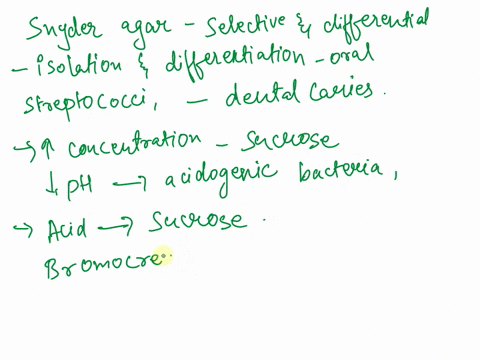 Snyder agar - selective & differential
- isolation & differentiation - oral
streptococci, - dental caries.
→ ↑ concentration - sucrose
↓ pH → acidogenic bacteria,
→ Acid → Sucrose.
Bromocre